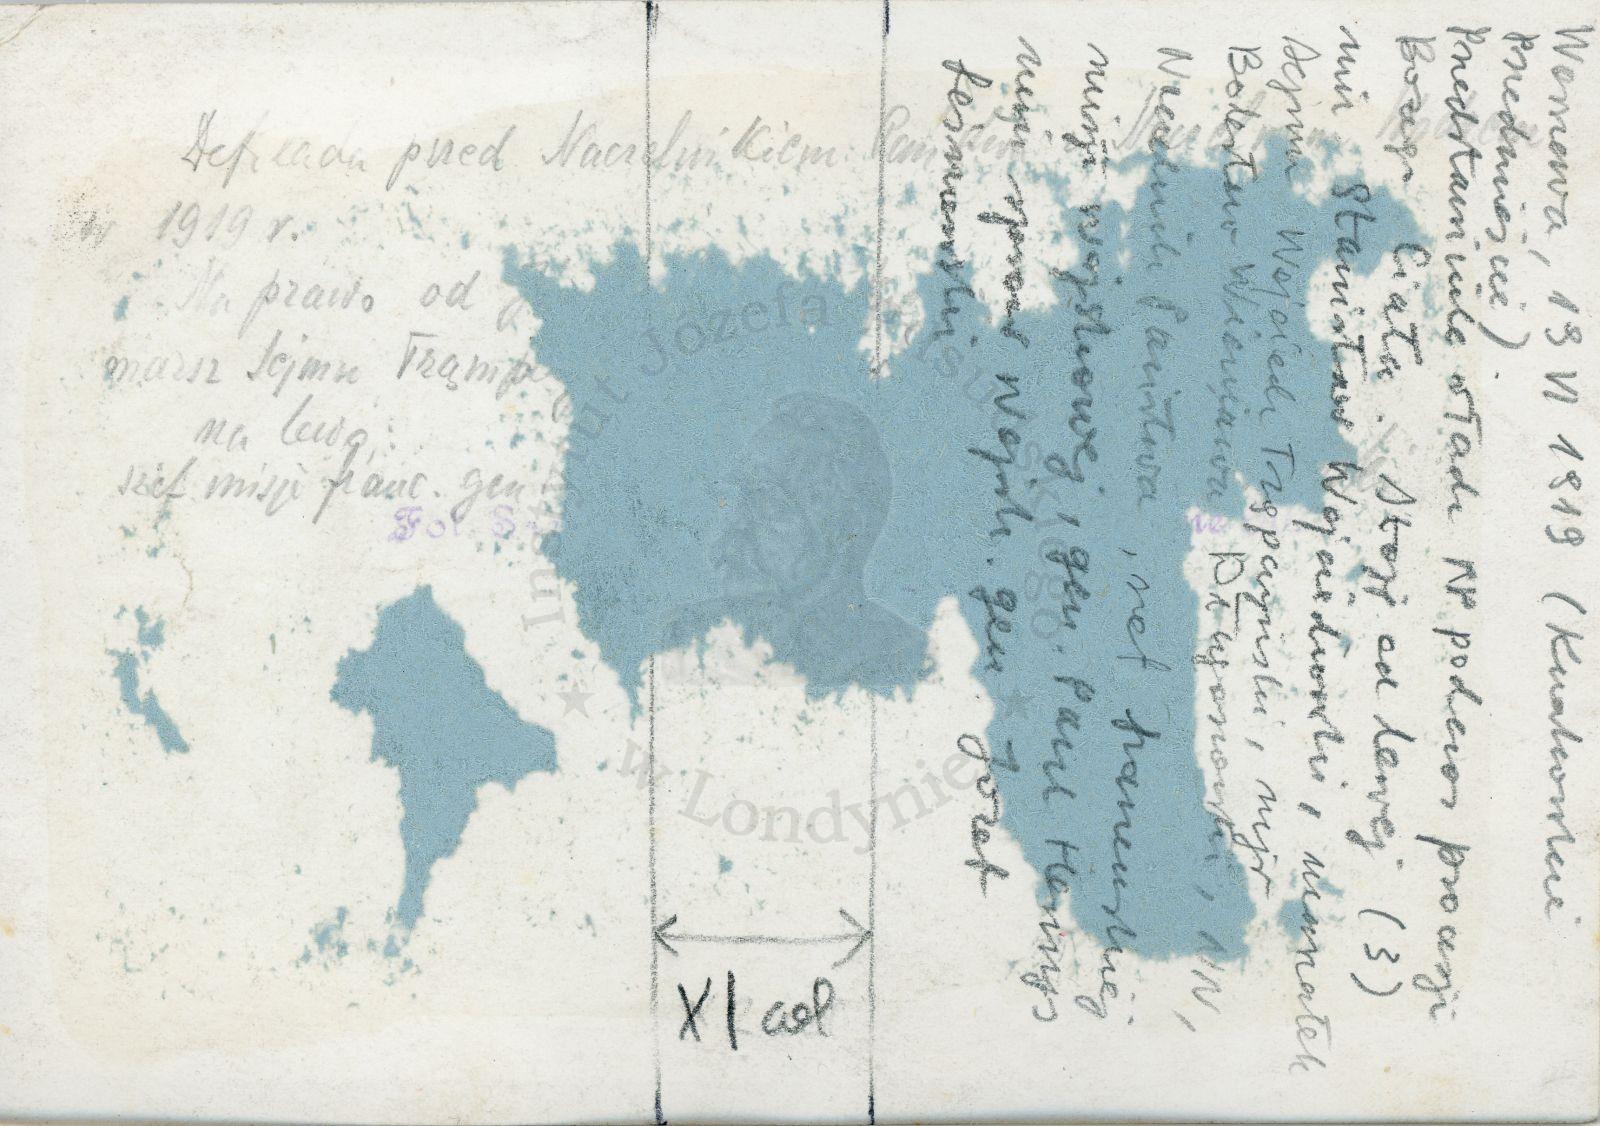 Defilada przed Naczelnikiem
w 1919 r.
Na prawo od
marsz Sejmu Trąmp
na lewo:
szef misji franc. gen
Fot.
Warszawa, 19 VI 1919 (Krakowskie
Przedmieście).
Przedstawiciele władz RP podczas procesji
Bożego Ciała. Stoją od lewej (3)
min Stanisław Wojciechowski, marszałek
Sejmu Wojciech Trąpczyński, mjr
Bolesław Wieniawa Długoszowski, NN,
Naczelnik Państwa, szef francuskiej
misji wojskowej, gen. Paul Henrys
min spraw Wojsk. gen Józef
Leśniewski
XI col
Instytut Józefa Piłsudskiego
w Londynie